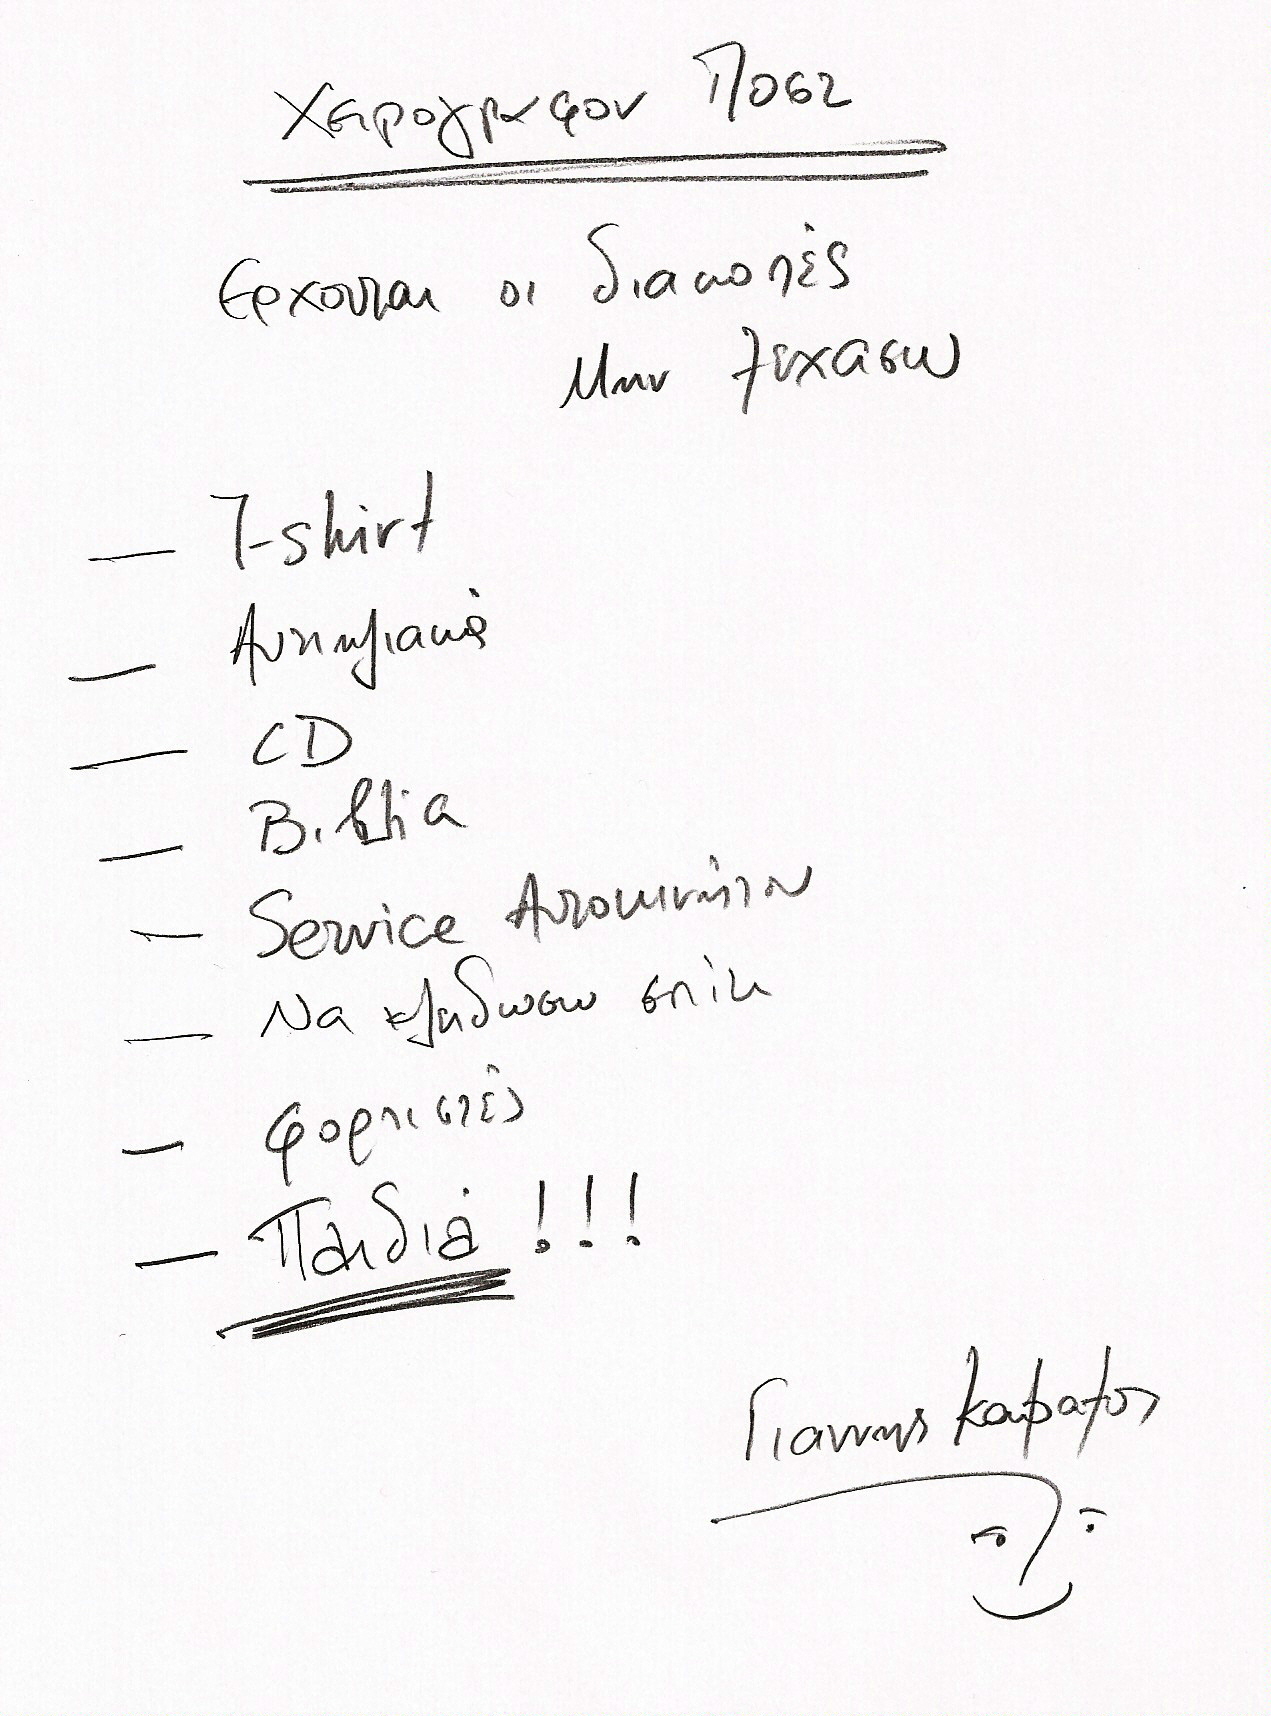 Χειρογραφον Ποστ
Ερχονται οι διακοπές
Μην ξεχασω
— T-shirt
— Αντηλιακό
— CD
— Βιβλία
— Service Αυτοκινήτου
— Να κλειδωσω σπίτι
— φορτιστές
— Παιδιά !!!
Γιαννης